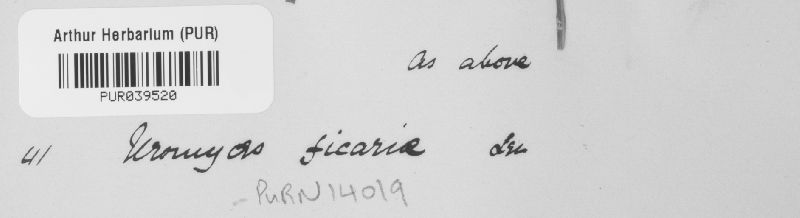 Arthur Herbarium (PUR)
PUR039520
As above
41 Uromyces ficariae Lev
PURN14019